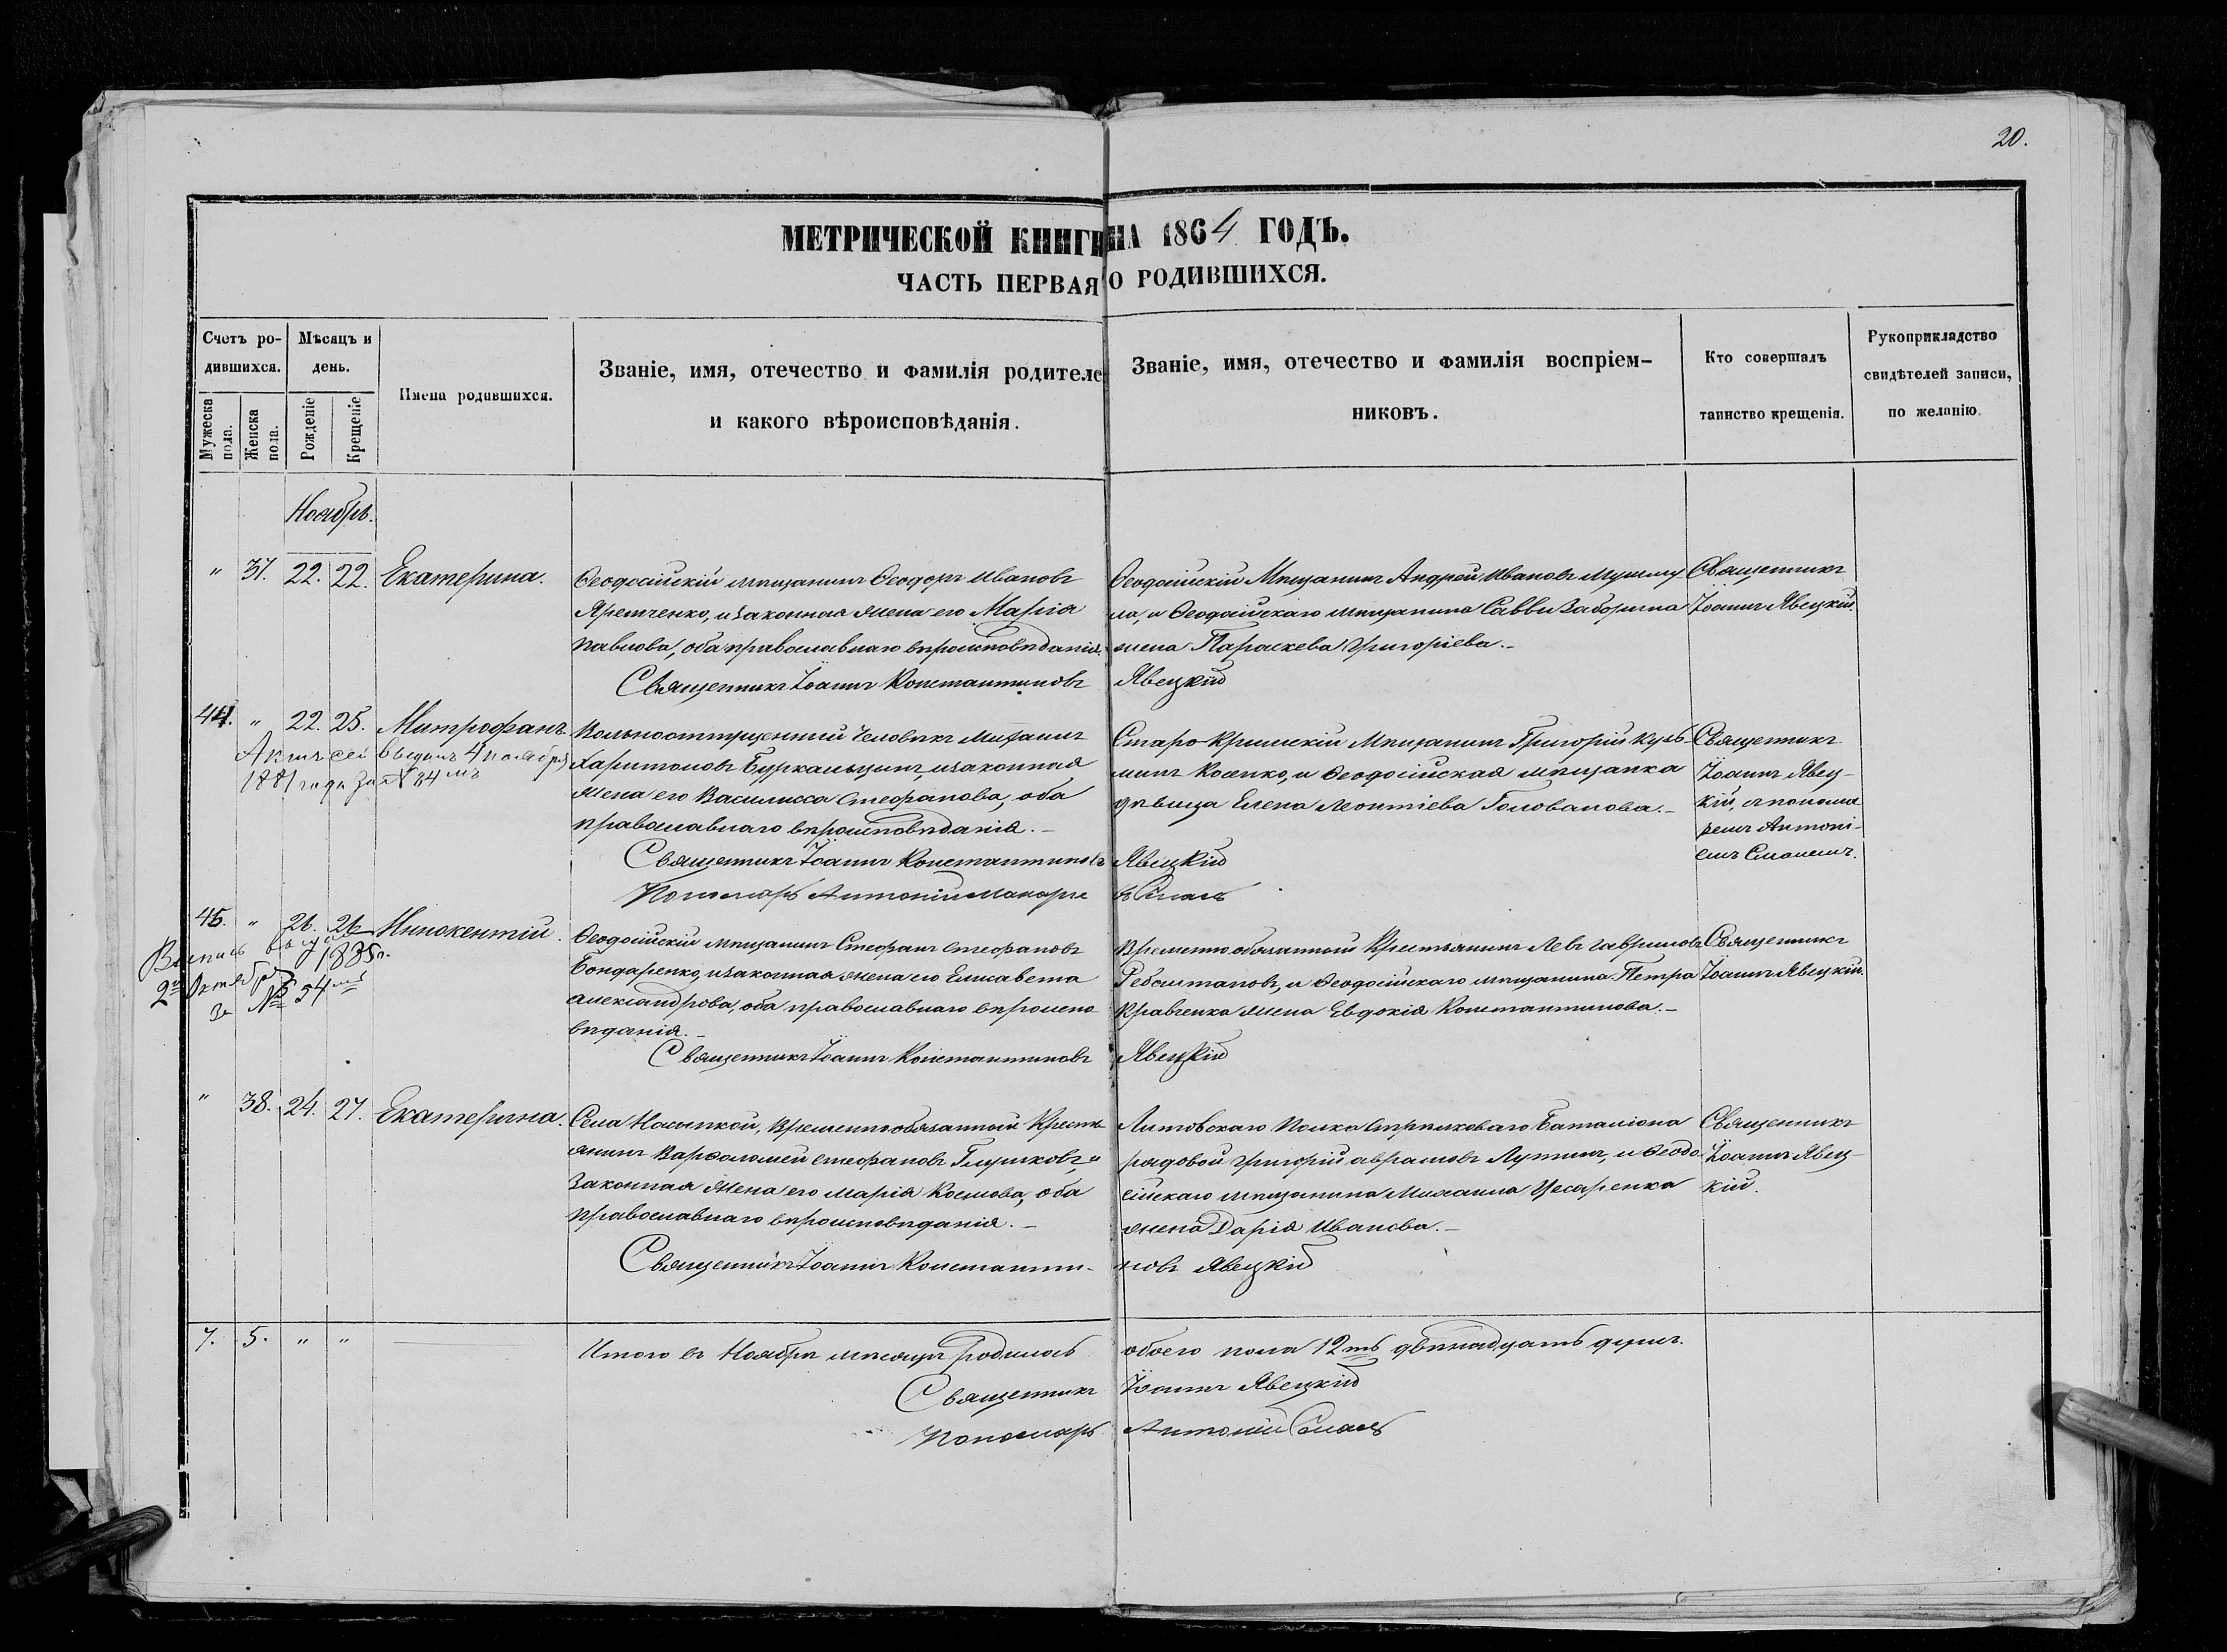 20.
МЕТРИЧЕСКОЙ КНИГИ НА 1864 ГОДЪ.
ЧАСТЬ ПЕРВАЯ О РОДИВШИХСЯ.
Счетъ ро-
дившихся.
Мужеска пола.
Женска пола.
Мѣсяцъ и
день.
Рожденіе
Крещеніе
Имена родившихся.
Званіе, имя, отечество и фамилія родителе
и какого вѣроисповѣданія.
Званіе, имя, отечество и фамилія воспріем-
никовъ.
Кто совершалъ
таинство крещенія.
Рукоприкладство
свидѣтелей записи,
по желанію.
Ноябрь.
" 37. 22. 22. Екатерина.
Ѳеодосійскій мѣщанинъ Ѳеодоръ Ивановъ
Яремченко, и законная жена его Марія
Павлова, оба православнаго вѣроисповѣданія.
Священникъ Іоаннъ Константиновъ Явецкій
Ѳеодосійскій Мѣщанинъ Андрей Ивановъ
ла, и Ѳеодосійскаго мѣщанина Саввы
жена Параскева Григоріева.-
Священникъ
Іоаннъ Явецкій.
44. " 22. 25. Митрофанъ.
Актъ сей выданъ 4 ноября
1881 года за № 34мъ
Вольноотпущенный Человѣкъ
Харитоновъ и законная
жена его Василисса Стефанова, оба
православнаго вѣроисповѣданія.-
Священникъ Іоаннъ Константиновъ Явецкій
Пономарь Антоній Макарье въ
Старо-Крымскій Мѣщанинъ Григорій Кузь-
минъ Косенко, и Ѳеодосійская мѣщанка
дѣвица Елена Леонтіева Голованова.-
Священникъ
Іоаннъ Явец-
кій, с понома
ремъ Антоні-
емъ
45. " 26. 26 Иннокентій.
Выпись выдана
2го Октября 1885г.
за № 54мъ
Ѳеодосійскій мѣщанинъ Стефанъ Стефановъ
Бондаренко, и законная жена его Елисавета
Александрова, оба православнаго вѣроиспо-
вѣданія.-
Священникъ Іоаннъ Константиновъ Явецкій
Временно обязанный Крестьянинъ Левъ Гавриловъ
и Ѳеодосійскаго мѣщанина Петра
Кравченка жена Евдокія Константинова.-
Священникъ
Іоаннъ Явецкій.
" 38. 24. 27. Екатерина.
Села Насыпкой, Временнообязанный Кресть-
янинъ Варѳоломей Стефановъ Глушковъ, и
Законная жена его Марія Космова, оба
Православнаго вѣроисповѣданія.-
Священникъ Іоаннъ Константи- новъ Явецкій
Литовскаго Полка Стрѣлковаго Баталіона
рядовой Григорій Аврамовъ и Ѳеодо-
сійскаго мѣщанина Михаила Цесаренка
жена Дарія Иванова.-
Священникъ
Іоаннъ Явец
кій.
7. 5. " "
Итого въ Ноябрѣ мѣсяцѣ родилось обоего пола 12ть двѣнадцать душъ.
Священникъ Іоаннъ Явецкій
Пономарь Антоній